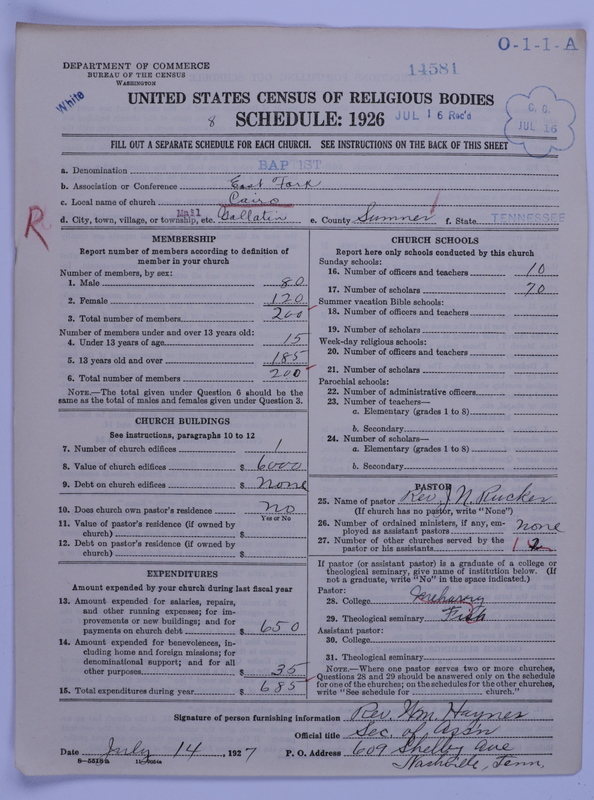 O-1-1-A
DEPARTMENT OF COMMERCE
BUREAU OF THE CENSUS
WASHINGTON
14581
White
UNITED STATES CENSUS OF RELIGIOUS BODIES
8 SCHEDULE: 1926 JUL 16 Rec'd
C. O.
JUL 16
FILL OUT A SEPARATE SCHEDULE FOR EACH CHURCH. SEE INSTRUCTIONS ON THE BACK OF THIS SHEET
a. Denomination BAPTIST
b. Association or Conference East Fork
c. Local name of church Cairo
d. City, town, village, or township, etc. Mail Gallatin e. County Sumner f. State TENNESSEE
R
MEMBERSHIP
Report number of members according to definition of
member in your church
Number of members, by sex:
1. Male 80
2. Female 120
3. Total number of members 200
Number of members under and over 13 years old:
4. Under 13 years of age 15
5. 13 years old and over 185
6. Total number of members 200
NOTE.—The total given under Question 6 should be
same as the total of males and females given under Question 3.
CHURCH BUILDINGS
See instructions, paragraphs 10 to 12
7. Number of church edifices 1
8. Value of church edifices $ 6000
9. Debt on church edifices $ none
10. Does church own pastor's residence no
Yes or No
11. Value of pastor's residence (if owned by
church) $
12. Debt on pastor's residence (if owned by
church) $
EXPENDITURES
Amount expended by your church during last fiscal year
13. Amount expended for salaries, repairs,
and other running expenses; for im-
provements or new buildings; and for
payments on church debt $ 650
14. Amount expended for benevolences, in-
cluding home and foreign missions; for
denominational support; and for all
other purposes $ 35
15. Total expenditures during year $ 685
CHURCH SCHOOLS
Report here only schools conducted by this church
Sunday schools:
16. Number of officers and teachers 10
17. Number of scholars 70
Summer vacation Bible schools:
18. Number of officers and teachers
19. Number of scholars
Week-day religious schools:
20. Number of officers and teachers
21. Number of scholars
Parochial schools:
22. Number of administrative officers
23. Number of teachers—
a. Elementary (grades 1 to 8)
b. Secondary
24. Number of scholars—
a. Elementary (grades 1 to 8)
b. Secondary
PASTOR
25. Name of pastor Rev. J. N. Rucker
(If church has no pastor, write "None")
26. Number of ordained ministers, if any, em-
ployed as assistant pastors none
27. Number of other churches served by the
pastor or his assistants 2
If pastor (or assistant pastor) is a graduate of a college or
theological seminary, give name of institution below. (If
not a graduate, write "No" in the space indicated.)
Pastor:
28. College
29. Theological seminary Fisk
Assistant pastor:
30. College
31. Theological seminary
NOTE.—Where one pastor serves two or more churches,
Questions 28 and 29 should be answered only on the schedule
for one of the churches; on the schedules for the other churches,
write "See schedule for church."
Signature of person furnishing information Rev. Wm. Haynes
Official title Sec. of Assn
Date July 14, 1927 P. O. Address 609 Shelby Ave
Nashville, Tenn.